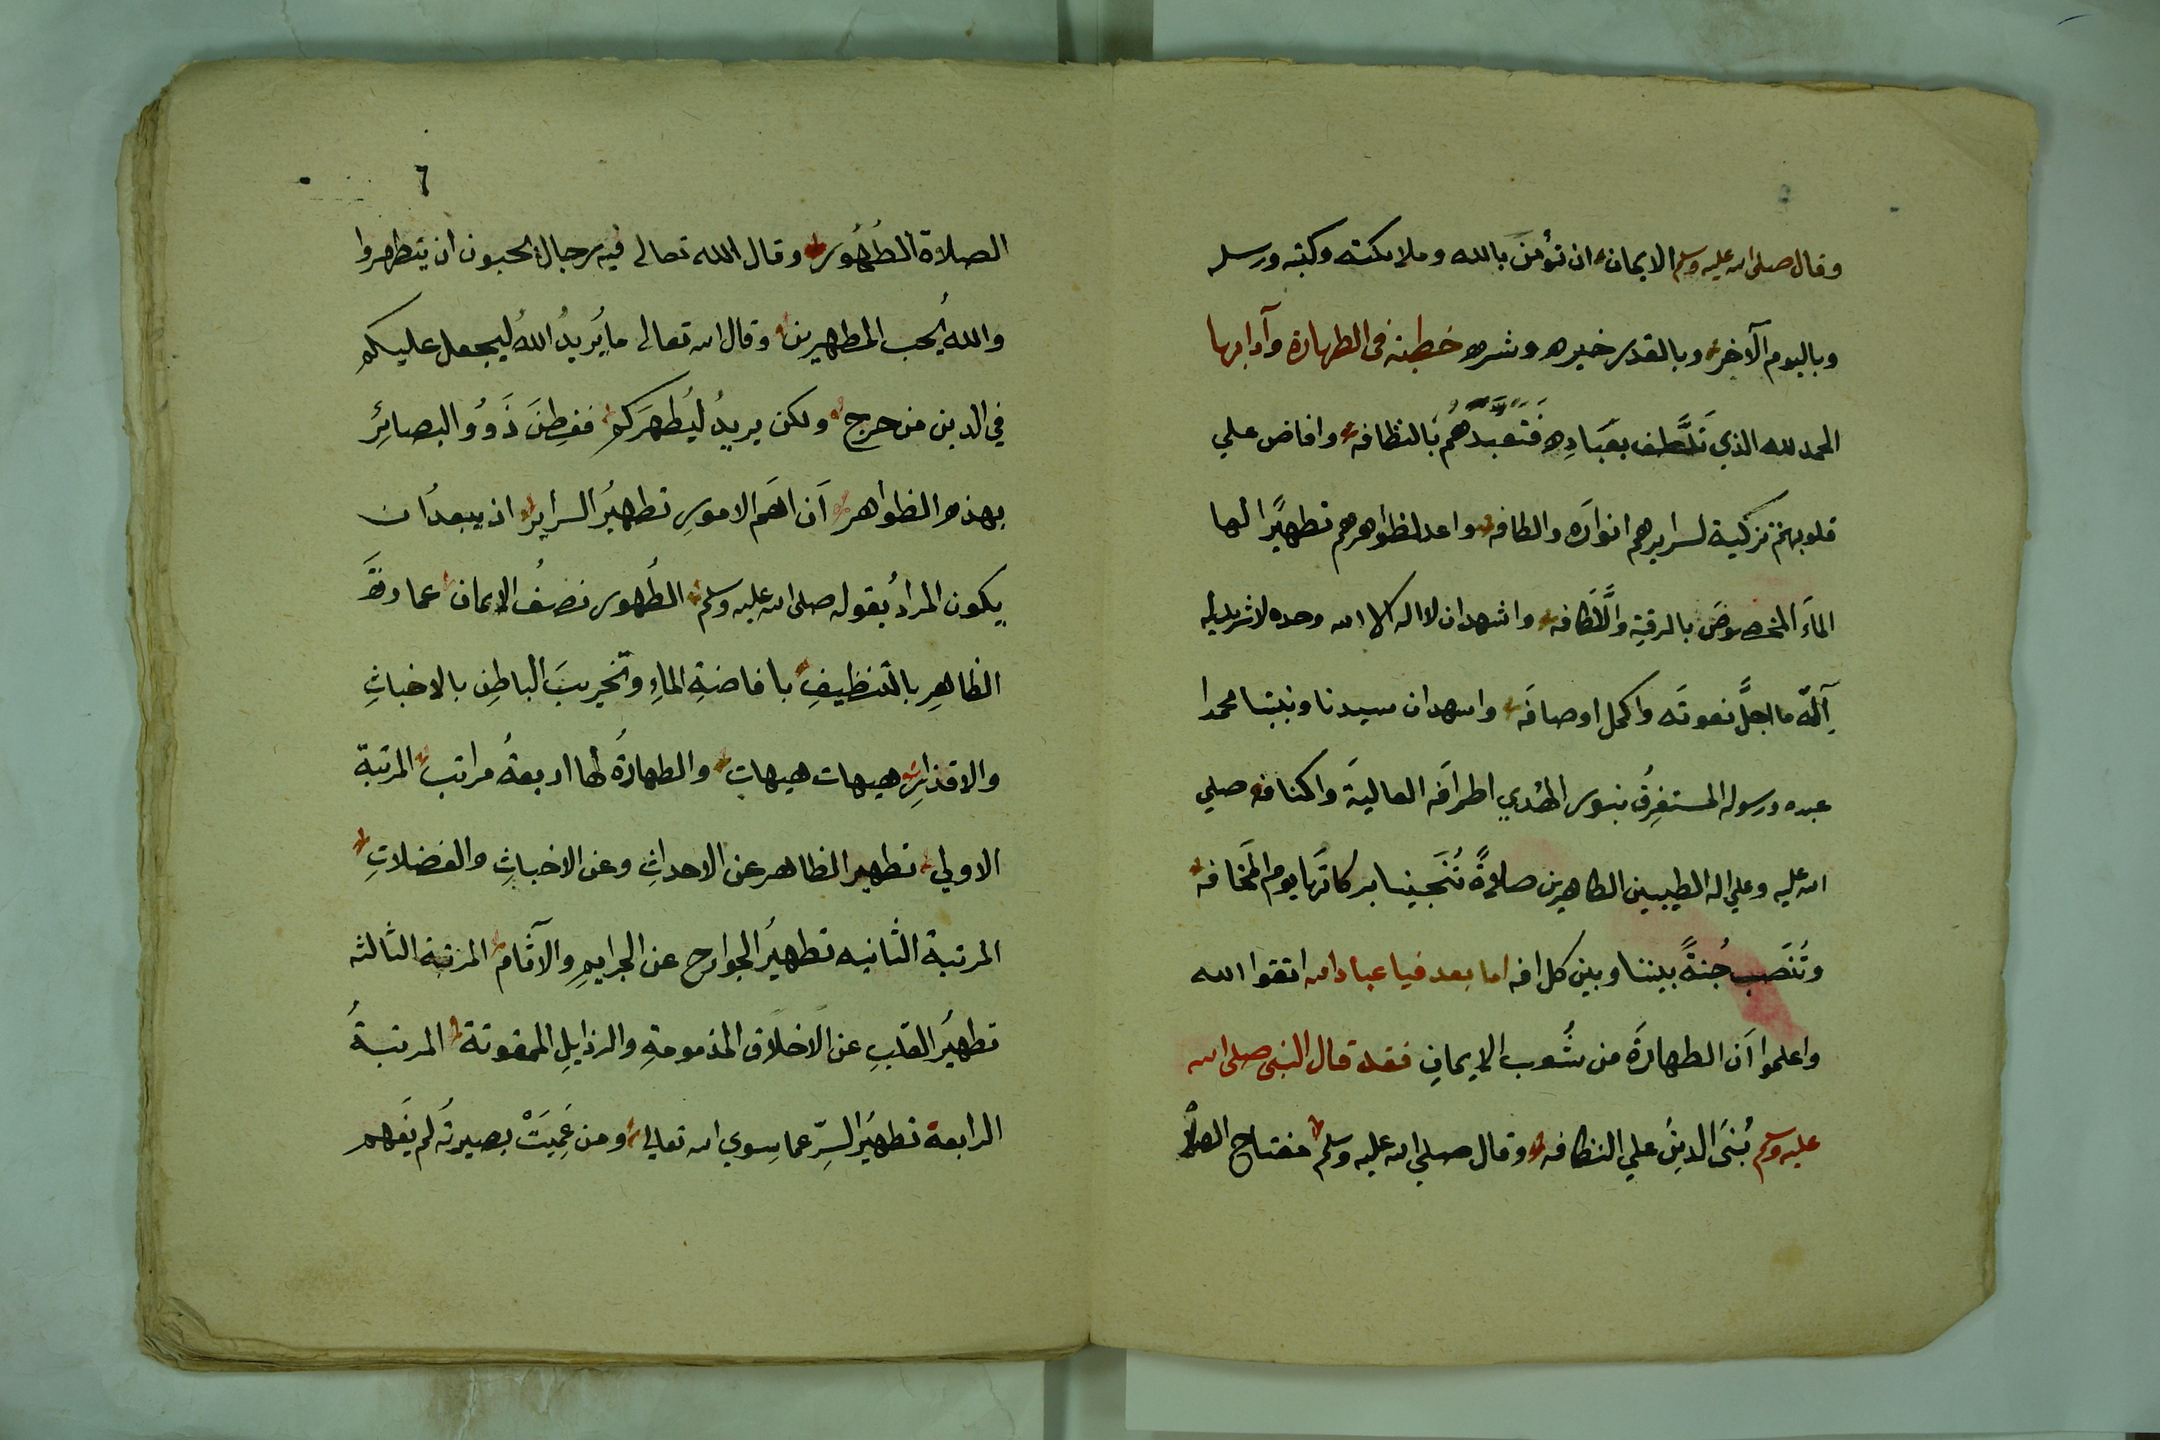 وقال صلى الله عليه وسلم الايمان ان تؤمنَ بالله وملايكته وكتبه ورسله
وباليوم الآخر وبالقدر خيره وشره خطبته في الطهارة وآدابها
الحمد لله الذي تلَطَّف بعِبَادِه فَتَعَبَّدَهُم بالنظافه وافاض علي
قلوبهم تزكية لسرايرهم انوارَه والطافه واعد لظواهرهم تطهيرًا لها
الماءَ المخصوصَ بالرقية واللَّطَافه واشهد ان لا اله الا الله وحده لا شريك له
اِلَهٌ ما اجلَّ نعوتَه واكمل اوصافَه واشهد ان سيدنا ونبينا محمدا
عبده ورسوله المستغرِقُ بنور الهُدي اطرافَه العالية واكنافه صلي
الله عليه وعلي اله الطيبين الطاهرين صلاةً تُنَجينا بركاتُها يوم المَخَافه
وتُنصَب جُنةً بيننا وبين كل افه اما بعد فيا عباد الله اتقوا الله
واعلموا اَن الطهارةَ من شُعب الايمانِ فقد قال النبي صلى الله
عليه وسلم بُنىَ الدينُ علي النظافه وقال صلي الله عليه وسلم مفتاح الصلاة
٦
الصلاة الطُهُور وقال الله تعالى فيه رجال يحبون ان يتطهروا
والله يُحب المطهرين وقال الله تعالى ما يُريدُ اللهُ ليجعل عليكم
في الدين من حرج ولكن يريدُ ليُطهرَكم ففطِنَ ذَوُوُ البصائِر
بهذه الظواهر اَن اهَم الامورِ تطهيرُ السراير اذ يبعدُ ان
يكون المرادُ بقوله صلى الله عليه وسلم الطُهور نصفُ الايمان عمارةَ
الظاهِرِ بالتنظيفِ بافاضةِ الماءِ وتخريبَ الباطِن بالاخباثِ
والاقذارِ هيهات هيهات والطهارةُ لها اربعةُ مراتب المرتبة
الاولي تطهير الظاهر عن الاحداثِ وعن الاخباثِ والفضلاتِ
المرتبة الثانيه تطهيرُ الجوارح عن الجرايمِ والآثام المرتبة الثالثه
تطهيرُ القلبِ عن الاخلاق المذمومةِ والرذايلِ الممقوتة المرتبةُ
الرابعة تطهيرُ السِّر عما سِوي الله تعالي ومن عَمِيَتْ بصيرتُه لم يَفهم